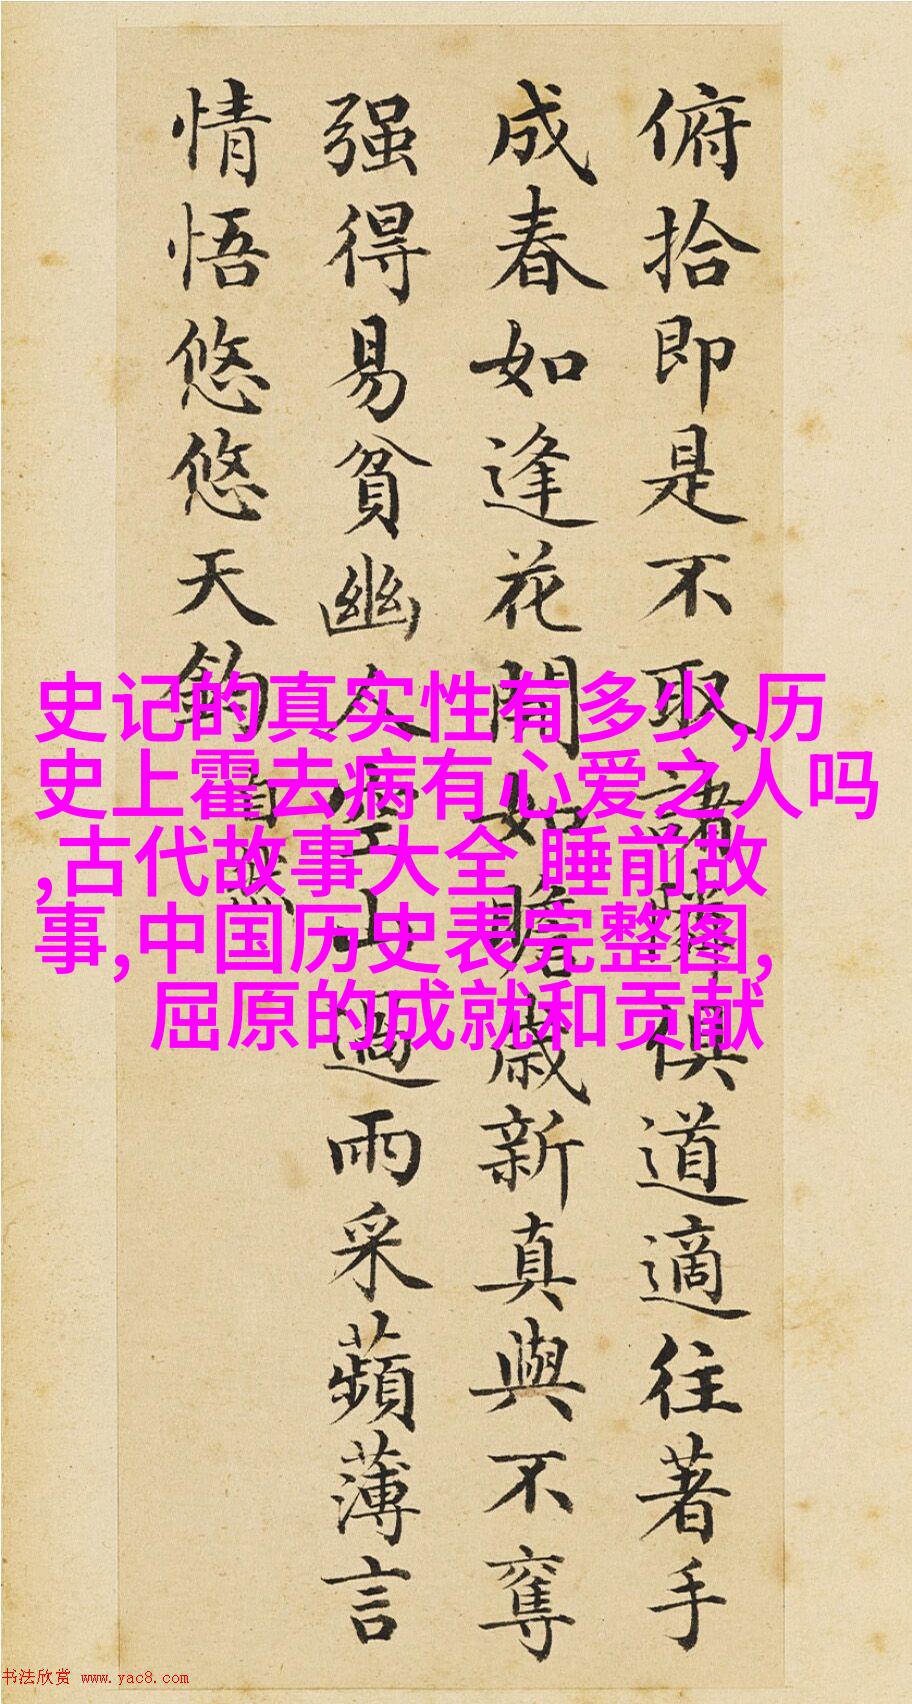 俯拾即是不取諸隣俱道適往著手
成春如逢花開如瞻歲新真與不奪
强得易貧幽人空山過雨采蘋薄言
情悟悠悠天鈞
自然
史记的真实性有多少,历
史上霍去病有心爱之人吗
,古代故事大全 睡前故
事,中国历史表完整图,
屈原的成就和贡献
书法欣赏 www.yac8.com